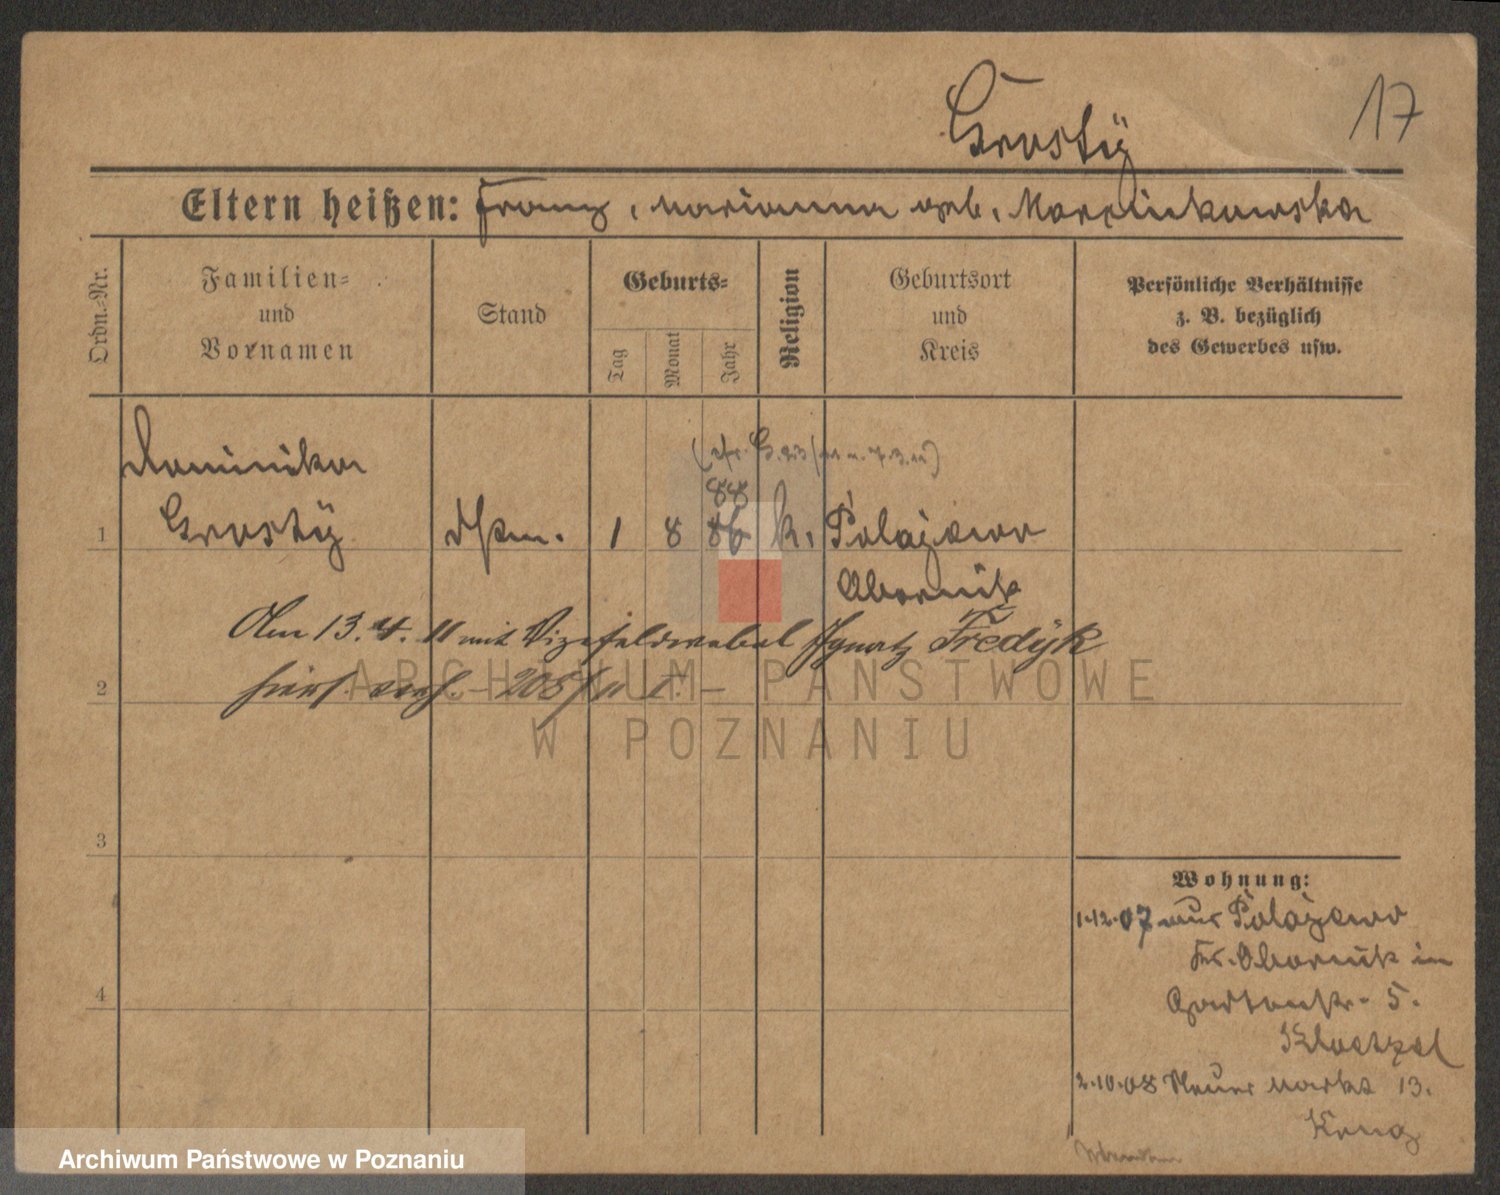 Grosty
17
Eltern heißen: Franz, Marianna geb. Marcinkowska
Ordn.-Nr.
Familien- und Vornamen
Stand
Geburts-
Tag
Monat
Jahr
Religion
Geburtsort und Kreis
Persönliche Verhältnisse z. B. bezüglich des Gewerbes usw.
Dominika
88
1 Grosty Dstm. 1 8 86 k. Polajewo
Obornik
Am 13. 4. 11 mit Vizefeldwebel Ignatz Fredyk
2 hiers. verh. - 205/11 I. -
3
4
Wohnung:
1.12.07 aus Polajewo
Krs. Obornik in
Gartenstr. 5.
2.10.08 Neuer Markt 13.
Krug
ARCHIWUM PAŃSTWOWE
W POZNANIU
Archiwum Państwowe w Poznaniu